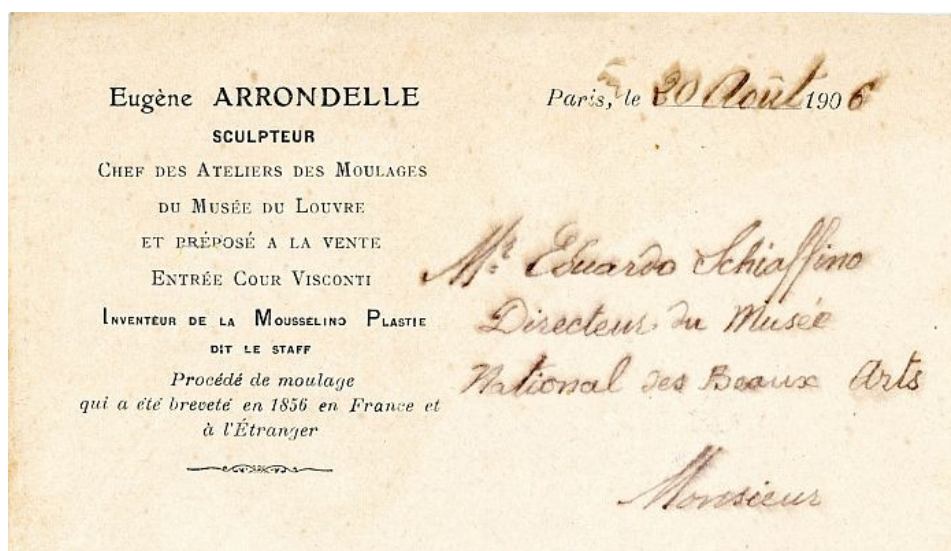 Eugène ARRONDELLE
SCULPTEUR
CHEF DES ATELIERS DES MOULAGES
DU MUSÉE DU LOUVRE
ET PRÉPOSÉ A LA VENTE
ENTRÉE COUR VISCONTI
INVENTEUR DE LA MOUSSELINO PLASTIE
DIT LE STAFF
Procédé de moulage
qui a été breveté en 1856 en France et
à l'Étranger
Paris, le 20 Août 1906
Mr. Eduardo Schiaffino
Directeur du Musée
National des Beaux Arts
Monsieur